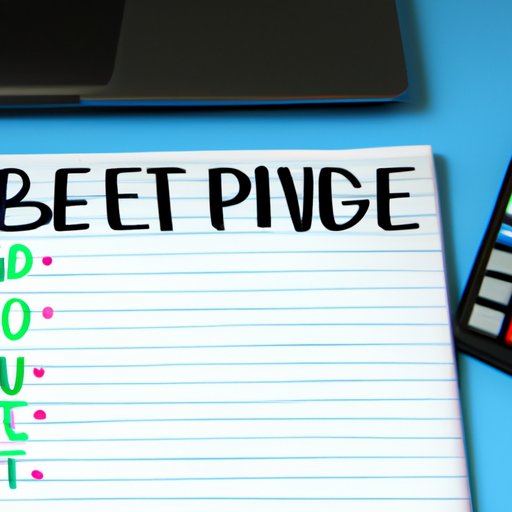 BEET PIVGE
D
O
U
T